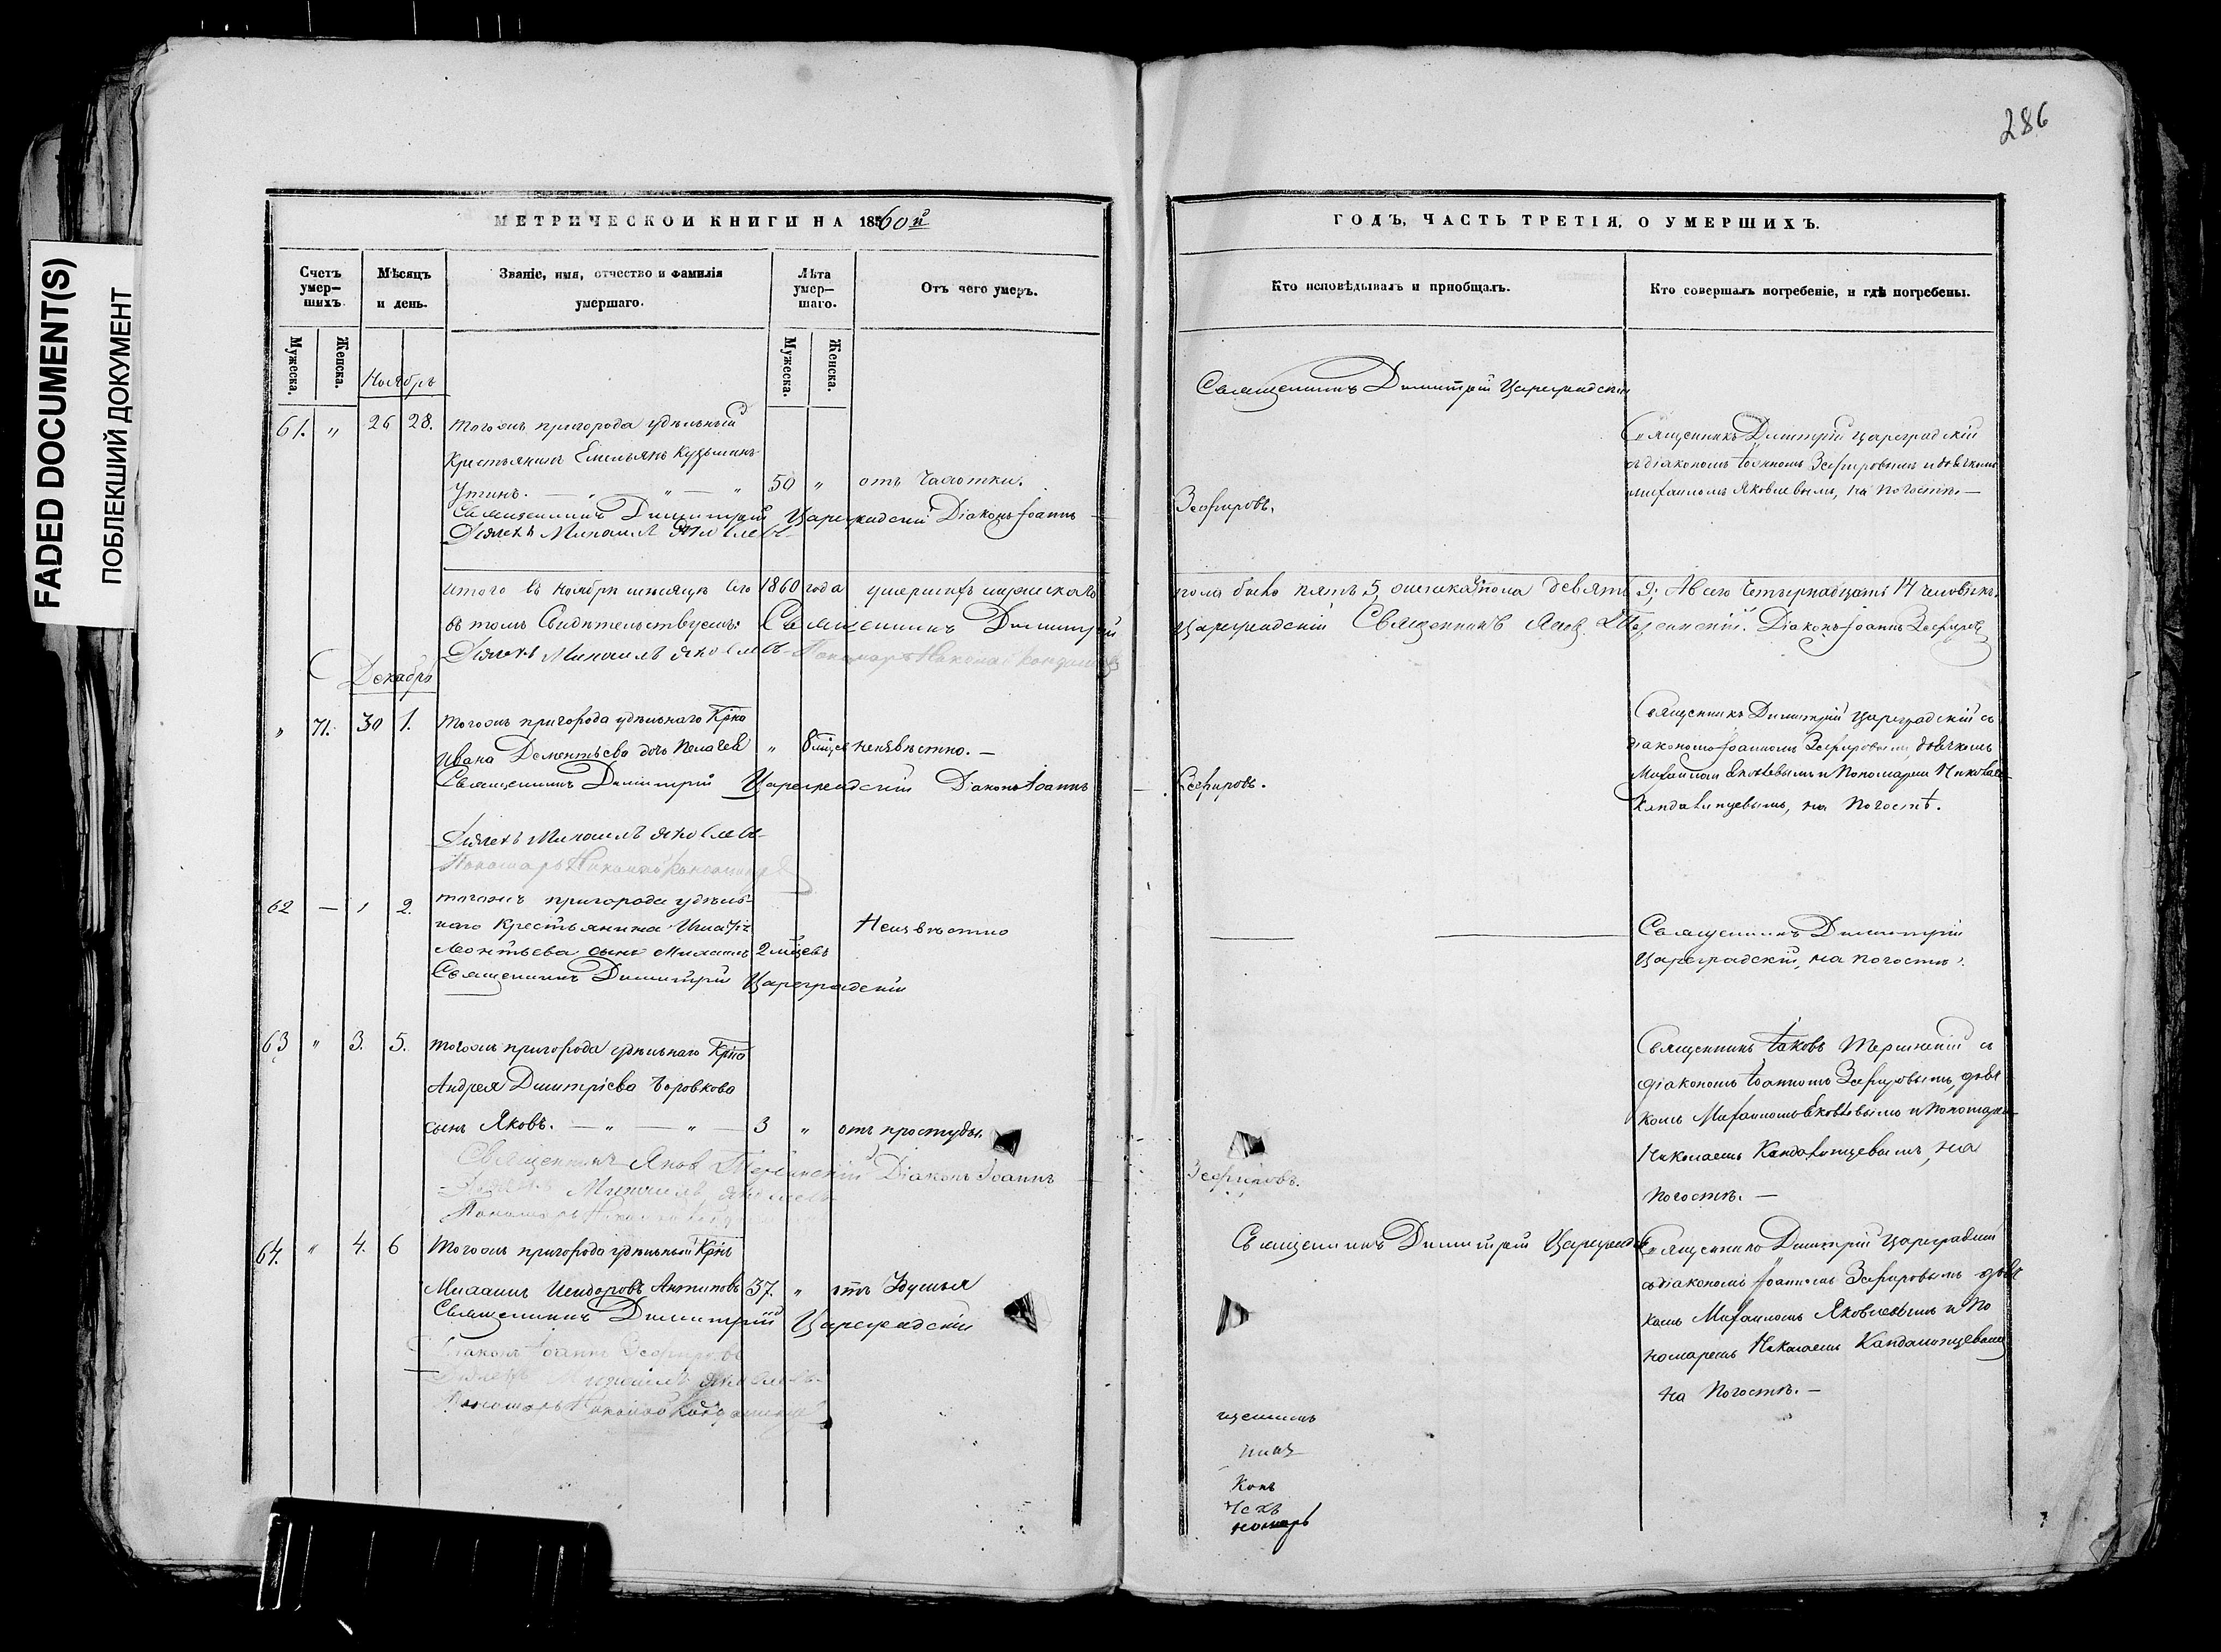 286
FADED DOCUMENT(S)
ПОБЛЕКШИЙ ДОКУМЕНТ
МЕТРИЧЕСКОЙ КНИГИ НА 1860й
Счетъ умер-шихъ.
Мѣсяцъ и день.
Званіе, имя, отчество и фамилія умершаго.
Лѣта умер-шаго.
Отъ чего умеръ.
Мужеска.
Женска.
Мужеска.
Женска.
Ноябрь
61. " 26 28. Тогожъ пригорода удѣльный
Крестьянинъ Емельянъ Кузьминъ
Утинъ. — " — " — " 50 " отъ Чахотки.
Священникъ Димитрій Цареградскій Діаконъ Іоаннъ
Дьячекъ Михаилъ Яковлевъ
Итого въ Ноябрѣ мѣсяцѣ сего 1860 года умершихъ мужеска
въ томъ Свидѣтельствуемъ: Священникъ Димитрій
Дьячекъ Михаилъ Яковлевъ Пономарь Николай
Декабрь
" 71. 30 1. Тогожъ пригорода удѣльнаго Крна
Ивана Дементьева дочь " 8 мцев неизвѣстно. —
Священникъ Димитрій Цареградскій Діаконъ Іоаннъ
Дьячекъ Михаилъ Яковлевъ
Пономарь Николай
62 — 1 2. Тогожъ пригорода удѣль-
наго Крестьянина Неизвѣстно
Леонтьева сынъ Михаилъ 2 мцевъ
Священникъ Димитрій Цареградскій
63 " 3. 5. Тогожъ пригорода удѣльнаго Крна
Андрея Дмитріева Боровкова
сынъ Яковъ. — " — " — 3 " отъ простуды.
Священникъ Яковъ Діаконъ Іоаннъ
Дьячекъ Михаилъ Яковлевъ
Пономарь Николай
64. " 4. 6 Тогожъ пригорода удѣльный Крнъ
Михаилъ Исидоровъ Антиповъ 37. " отъ Удушья
Священникъ Димитрій Цареградскій
Діаконъ Іоаннъ Зефировъ
Дьячекъ Михаилъ Яковлевъ
Пономарь Николай
ГОДЪ, ЧАСТЬ ТРЕТІЯ, О УМЕРШИХЪ.
Кто исповѣдывалъ и пріобщалъ.
Кто совершалъ погребеніе, и гдѣ погребены.
Священникъ Димитрій Цареградскій
Священникъ Димитрій Цареградскій
съ діакономъ Іоанномъ Зефировымъ и дьячкомъ
Михаиломъ Яковлевымъ, на погостѣ. —
Зефировъ.
пола было пять 5, женска пола девять 9; А всего четырнадцать 14 человѣкъ,
Цареградскій Священникъ Яков. Діаконъ Іоаннъ Зефировъ
Священникъ Димитрій Цареградскій съ
діакономъ Іоанномъ Зефировымъ, дьячкомъ
Михаиломъ Яковлевымъ и Пономаремъ Николаемъ
на Погостѣ.
Зефировъ.
Священникъ Димитрій
Цареградскій, на погостѣ.
Священникъ Іаковъ съ
діакономъ Іоанномъ Зефировымъ, дьяч
комъ Михаиломъ Яковлевымъ и Пономаре-
Николаемъ на
погостѣ. —
Зефировъ.
Священникъ Димитрій Цареградск
Священникъ Димитрій Цареградскій
съ діакономъ Іоанномъ Зефировымъ дьяч
комъ Михаиломъ Яковлевымъ и По
номаремъ Николаемъ
на Погостѣ. —
щенникъ
никъ
конъ
чекъ
номарь